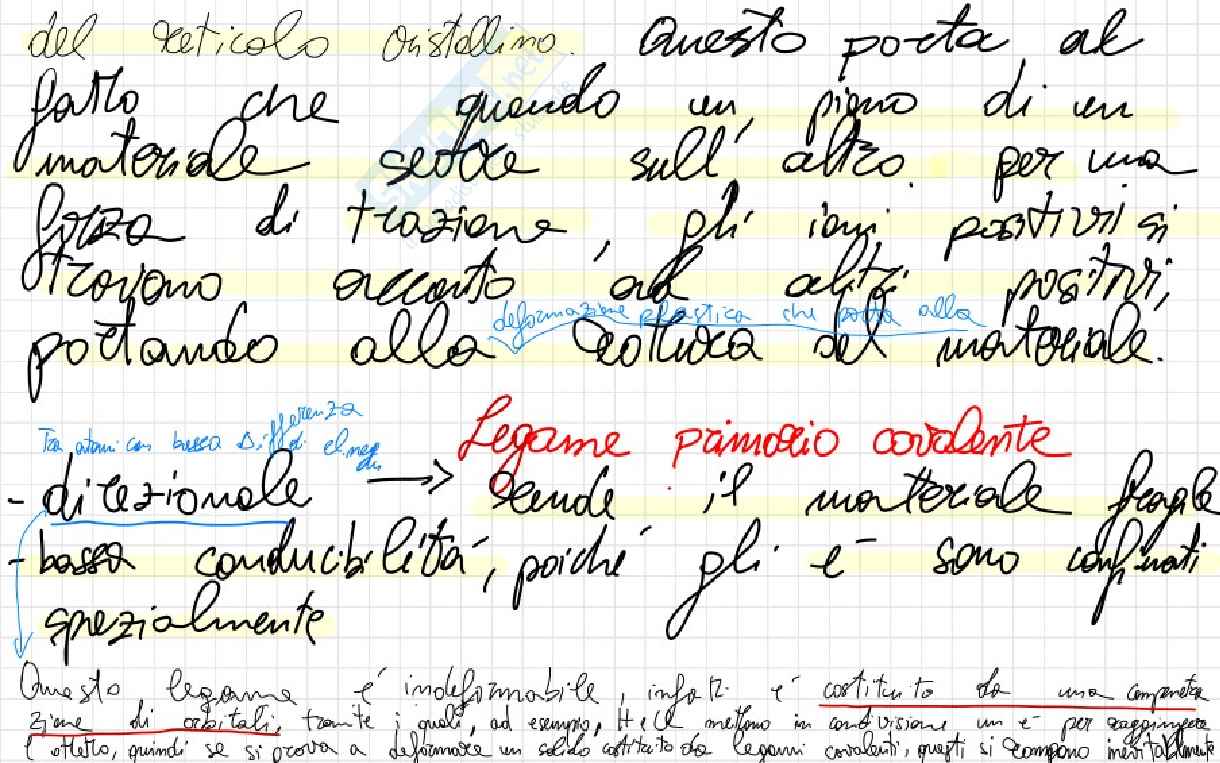 del reticolo cristallino. Questo porta al
fatto che quando un piano di un
materiale scorre sull'altro per una
forza di trazione, gli ioni positivi si
trovano accanto ad altri positivi,
deformazione plastica che porta alla
portando alla rottura del materiale.
Tra atomi con bassa differenza di el.neg
Legame primario covalente
- direzionale → rende il materiale fragile
- bassa conducibilità, poiché gli e⁻ sono confinati
spazialmente
Questo legame è indeformabile, infatti è costituito da una compenetra
zione di orbitali, tramite i quali, ad esempio, H e Cl mettono in condivisione un e⁻ per raggiungere
l'ottetto, quindi se si prova a deformare un solido costituito da legami covalenti, questi si rompono inevitabilmente